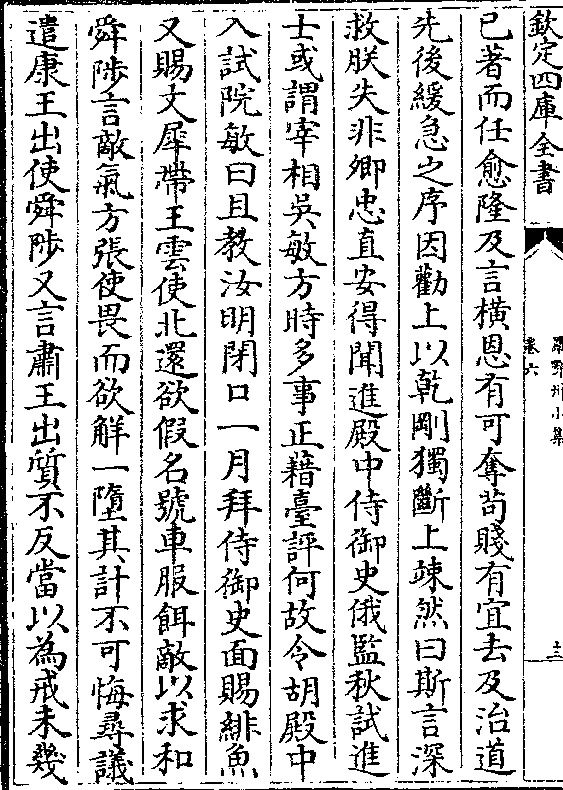 欽定四庫全書
羅鄂州小集
卷六
十二
已著而任愈隆及言橫恩有可奪苟賤有宜去及治道
先後緩急之序因勸上以乾剛獨斷上竦然曰斯言深
救朕失非卿忠直安得聞進殿中侍御史俄監秋試進
士或謂宰相吳敏方時多事正藉臺評何故令胡殿中
入試院敏曰且教汝明閉口一月拜侍御史面賜緋魚
又賜文犀帶王雲使北還欲假名號車服餌敵以求和
舜陟言敵氣方張使畏而欲解一墮其計不可悔尋議
遣康王出使舜陟又言肅王出質不反當以為戒未幾